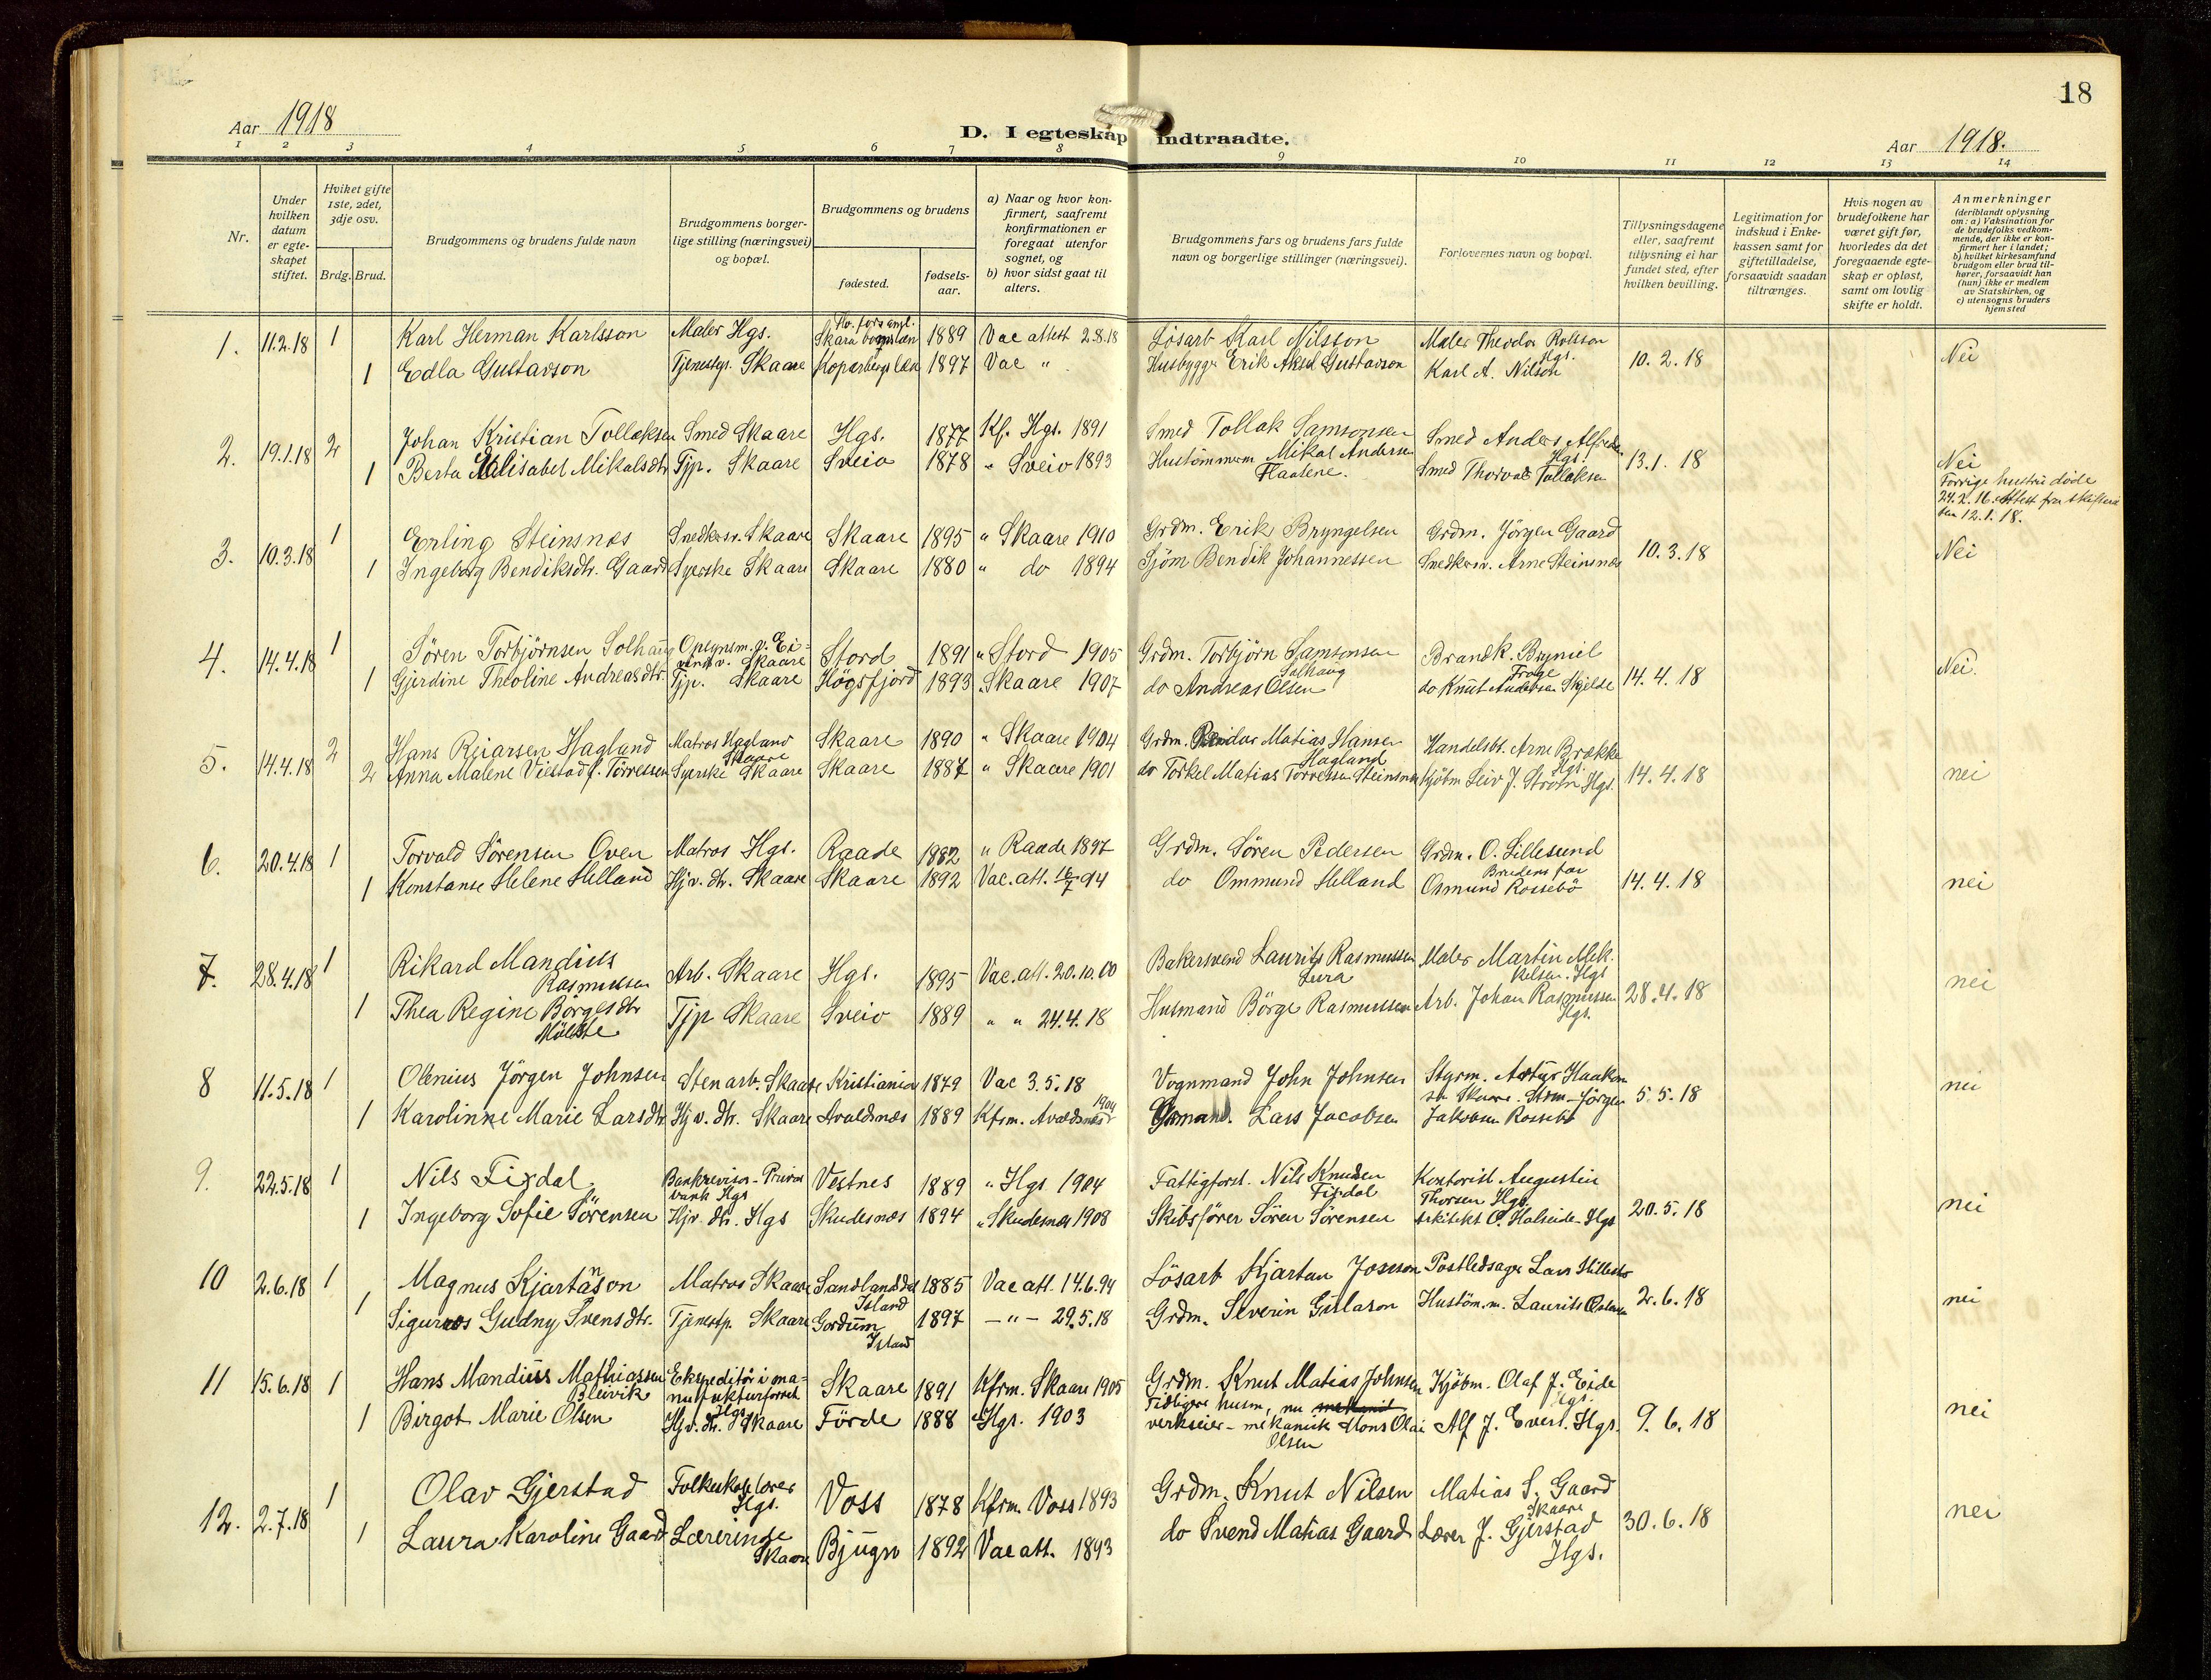 18
Aar 1918
D. I egteskap indtraadte.
Aar 1918.
1 2 3 4 5 6 7 8 9 10 11 12 13 14
Nr.
Under hvilken datum er egteskapet stiftet.
Hvilket gifte 1ste, 2det, 3dje osv.
Brdg. Brud.
Brudgommens og brudens fulde navn
Brudgommens borgerlige stilling (næringsvei) og bopæl.
Brudgommens og brudens
fødested.
fødselsaar.
a) Naar og hvor konfirmert, saafremt konfirmationen er foregaat utenfor sognet, og
b) hvor sidst gaat til alters.
Brudgommens fars og brudens fars fulde navn og borgerlige stillinger (næringsvei).
Forlovernes navn og bopæl.
Tillysningsdagene eller, saafremt tillysning ei har fundet sted, efter hvilken bevilling.
Legitimation for indskud i Enkekassen samt for giftetilladelse, forsaavidt saadan tiltrænges.
Hvis nogen av brudefolkene har været gift før, hvorledes da det foregaaende egteskap er opløst, samt om lovlig skifte er holdt.
Anmerkninger (deriblandt oplysning om: a) Vaksination for de brudefolks vedkommende, der ikke er konfirmert her i landet; b) hvilket kirkesamfund brudgom eller brud tilhører, forsaavidt han (hun) ikke er medlem av Statskirken, og c) utensogns bruders hjemsted
1. 11.2.18 1 Karl Herman Karlsson Maler Hgs. Skara 1889 Vac attest 2.8.18 Løsarb Karl Nilsson Maler Theodor Hgs. 10.2.18 Nei
1 Edla Gustavson Tjenestp. Skaare Koparbergs læn 1897 Vac " Husbygger Erik Aksel Gustavson Karl A. Nilson
2. 19.1.18 2 Johan Kristian Tollaksen Smed Skaare Hgs. 1877 Kf. Hgs. 1891 Smed Tollak Samsonsen Smed Anders Hgs. 13.1.18 Nei
1 Berta Elisabet Mikalsdtr Tjp. Skaare Sveio 1878 " Sveio 1893 Hustømmerm Mikal Andersen Smed Thorvald Tollaksen
Forrige hustru døde 24.2.16. Attest fra skifteret ten 12.1.18.
3. 10.3.18 1 Erling Steinsnes Snedkersv. Skaare Skaare 1895 " Skaare 1910 Grdm. Erik Bryngelsen Grdm. Jörgen Gaard 10.3.18 Nei
1 Ingeborg Bendiksdtr. Gaard Syerske Skaare Skaare 1880 " do 1894 Sjöm Bendik Johannessen Snedkersv. Arne Steinsnes
4. 14.4.18 1 Sören Torbjörnsen Solhaug Opsynsm. v. Skaare Stord 1891 " Stord 1905 Grdm. Torbjörn Samsonsen Solhaug Brandk. Bryniel 14.4.18 Nei.
1 Gjerdine Theoline Andreasdtr. Tjp. Skaare Högsfjord 1893 " Skaare 1907 do Andreas Olsen do Knut Andersen Skjelde
5. 14.4.18 2 Hans Reiarsen Hagland Matros Hagland Skaare Skaare 1890 " Skaare 1904 Grdm. Reidar Matias Hansen Hagland Handelsbt. Arne Brække Hgs. 14.4.18 nei
2 Anna Malene Viestad f. Törressen Syerske Skaare Skaare 1887 " Skaare 1901 do Torkel Matias Törresen Steinsnes Kjöbm Leiv J. Ström Hgs.
6. 20.4.18 1 Torvald Sörensen Oven Matros Hgs. Raade 1882 " Raade 1897 Grdm. Sören Pedersen Grdm. O. Lillesund Brudens far 14.4.18 nei
1 Konstanse Helene Helland Hjv. dtr. Skaare Skaare 1892 Vac. att. 16/7 94 do Ommund Helland Osmund Rossebö
7. 28.4.18 1 Rikard Mandius Rasmussen Arb. Skaare Hgs. 1895 Vac. att. 20.10.00 Bakersvend Laurits Rasmussen Lura Maler Martin Mik. Hgs 28.4.18 nei
1 Thea Regine Börgesdtr Tjp Skaare Sveio 1889 " " 24.4.18 Husmand Börge Rasmussen Arb. Johan Rasmussen Hgs.
8 11.5.18 1 Olenius Jörgen Johnsen Stenarb. Skaare Kristiania 1879 Vac 3.5.18 Vognmand John Johnsen Styrm. Artur Haakon sen Skaare. 5.5.18 nei
1 Karolinne Marie Larsdtr Hjv. dtr. Skaare Avaldsnes 1889 Kfrm. Avaldsnes 1904 Lars Jacobsen Jörgen Jakobsen Rossebö
9. 22.5.18 1 Nils Fixdal Bankrevisor - Privatbank Hgs Vestnes 1889 " Hgs 1904 Fattigforst. Nils Knudsen Fixdal Kontorist Augustin Thorsen Hgs 20.5.18 nei
1 Ingeborg Sofie Sörensen Hjv. dtr. Hgs Skudesnæs 1894 " Skudesnæs 1908 Skibsförer Sören Sörensen Arkitekt O. Halseide - Hgs
10 2.6.18 1 Magnus Kjartanson Matros Skaare Island 1885 Vac att. 14.6.94 Lösarb Kjartan Joseson Postledsager Lars 2.6.18 nei
1 Gudny Svensdtr. Tjenestp. Skaare Island 1897 - " - 29.5.18 Grdm. Severin Gislason Hustöm.m. Laurits
11 15.6.18 1 Hans Mandius Mathiassen Bleivik Ekspeditör i manufakturforret. Hgs. Skaare 1891 Kfrm. Skaare 1905 Grdm. Knut Matias Johnsen Kjöbm. Olaf J. Eide Hgs. 9.6.18 nei
1 Birgot Marie Olsen Hjv. dtr. Skaare Förde 1888 " Hgs. 1903 Tidligere husm, nu verkseier - mekanisk Mons Olai Olsen Alf J. Hgs.
12. 2.7.18 1 Olav Gjerstad Folkeskolelærer Hgs. Voss 1878 Kfrm. Voss 1893 Grdm. Knut Nilsen Matias S. Gaard Skaare 30.6.18 nei
1 Laura Karoline Gaard Lærerinde Skaare Bjugn 1892 Vac att. 1893 do Svend Matias Gaard Lærer J. Gjerstad Hgs.